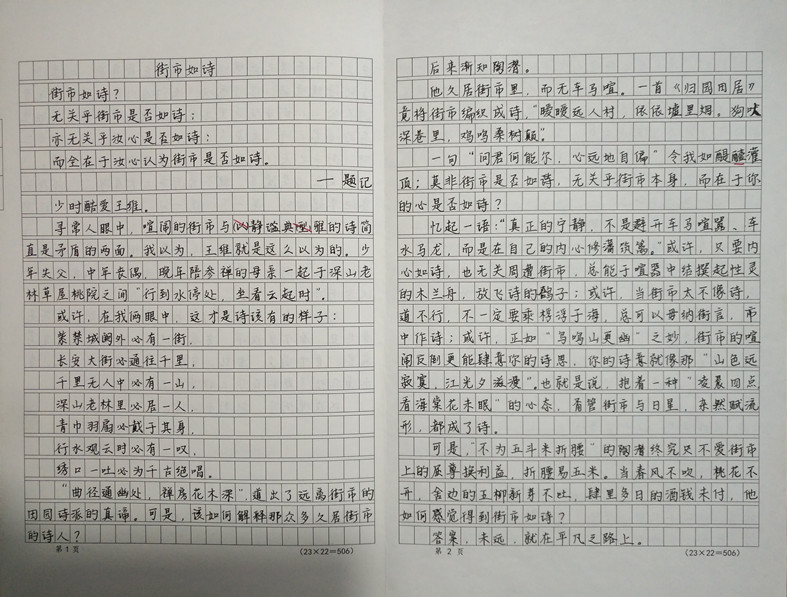 街市如诗
街市如诗?
无关乎街市是否如诗;
亦无关乎汝心是否如诗;
而全在于汝心认为街市是否如诗。
— 题记
少时酷爱王维。
寻常人眼中,喧闹的街市与静谧典雅的诗简
直是矛盾的两面。我以为,王维就是这么以为的。少
年失父,中年丧偶,晚年陪参禅的母亲一起于深山老
林草屋桃院之间“行到水停处,坐看云起时”。
或许,在我俩眼中,这才是诗该有的样子:
紫禁城阙外必有一街,
长安大街必通往千里,
千里无人中必有一山,
深山老林里必居一人,
青巾羽扇必戴于其身,
行水观云时必有一叹,
绣口一吐必为千古绝唱。
“曲径通幽处,禅房花木深”,道出了远离街市的
田园诗派的真谛。可是,该如何解释那众多久居街市
的诗人?
第 1 页
(23×22=506)
后来渐知陶潜。
他久居街市里,而无车马喧。一首《归园田居》
竟将街市编织成诗,“暧暧远人村,依依墟里烟。狗吠
深巷里,鸡鸣桑树颠”。
一句“问君何能尔,心远地自偏”令我如醍醐灌
顶;莫非街市是否如诗,无关乎街市本身,而在于你
的心是否如诗?
忆起一语:“真正的宁静,不是避开车马喧嚣、车
水马龙,而是在自己的内心修潘筑篱。”或许,只要内
心如诗,也无关周遭街市,总能于喧嚣中结撰起性灵
的木兰舟,放飞诗的鹞子;或许,当街市太不像诗,
道不行,不一定要乘桴浮于海,总可以毋纳街言,市
中作诗;或许,正如“鸟鸣山更幽”之妙,街市的喧
闹反倒更能肆意你的诗思,你的诗意就像那“山色远
寂寞,江光夕滋漫”。也就是说,抱着一种“凌晨四点,
看海棠花未眠”的心态,看管街市与日星,杂然赋流
形,都成了诗。
可是,“不为五斗米折腰”的陶潜终究只不爱街市
上的屈尊换利益,折腰易五米。当春风不吹,桃花不
开,舍边的五柳新芽不吐,肆里多日的酒钱未付,他
如何感觉得到街市如诗?
答案,未远,就在平凡之路上。
第 2 页
(23×22=506)